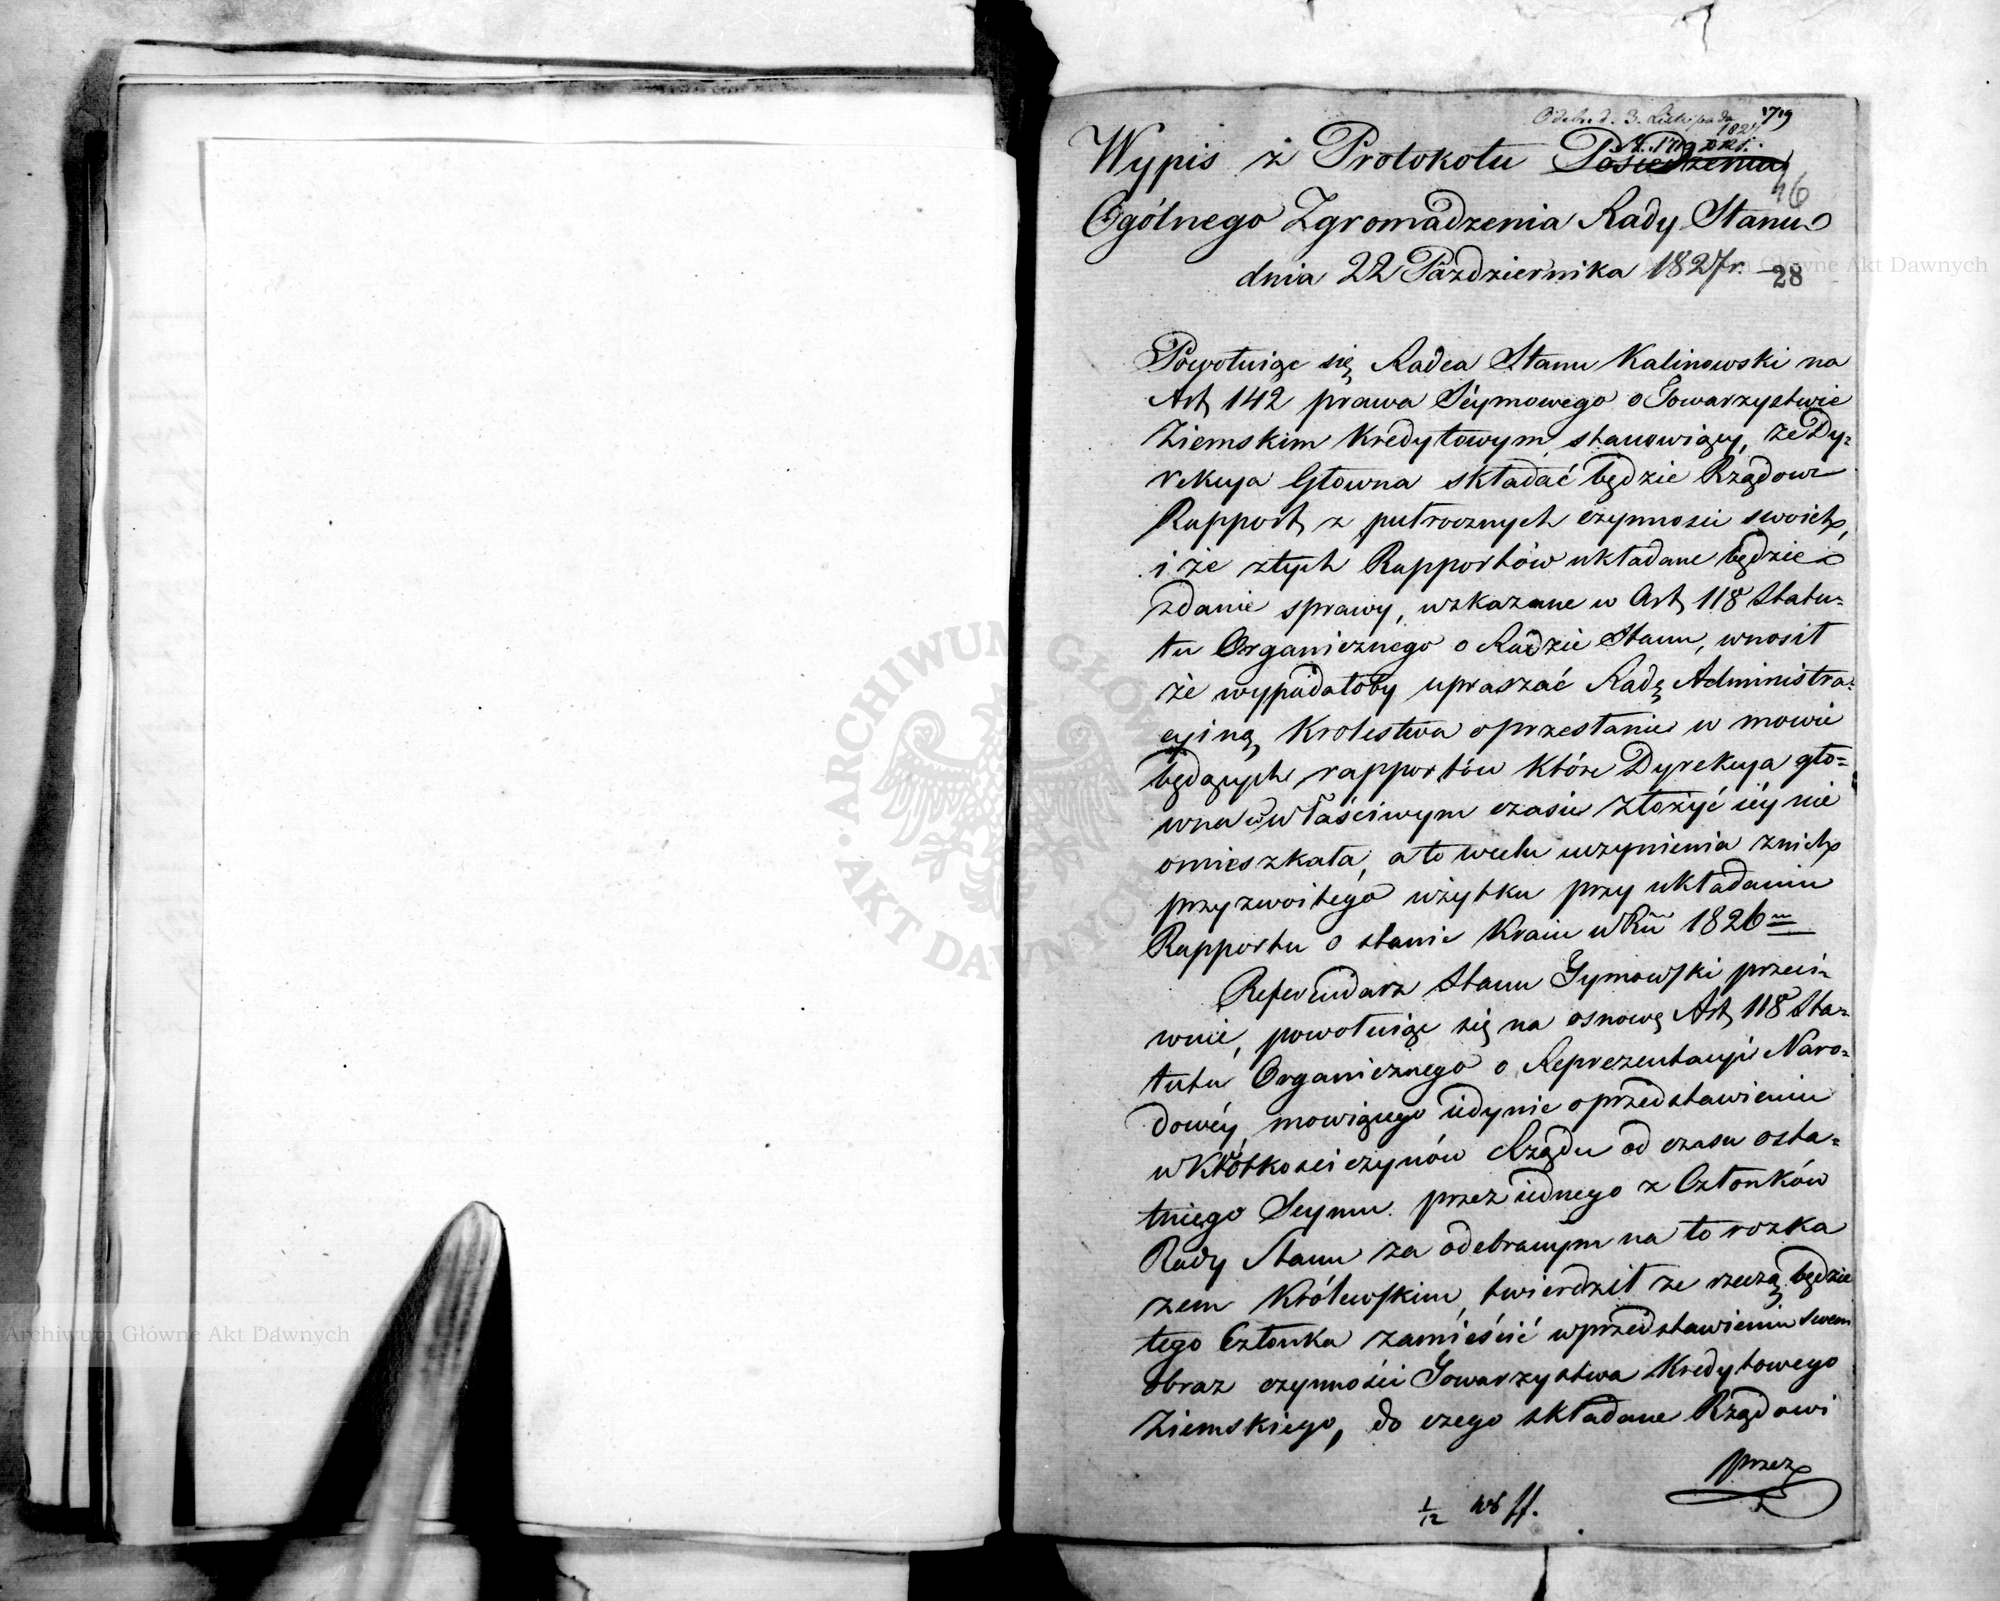 Odebr. d. 3. Listopada 1719
1827
Wypis z Protokołu Posiedzenia
46
Ogólnego Zgromadzenia Rady Stanu
dnia 22 Października 1827r.
28
Powołuiąc się Radca Stanu Kalinowski na
Art 142 prawa Séymowego o Towarzystwie
Ziemskim Kredytowym, stanowiący, że Dy=
rekcya Głowna składać będzie Rządowi
Rapport z pułrocznych czynności swoich,
i że ztych Rapportów układane będzie
zdanie sprawy, wzkazane w Art 118 Statu=
tu Organicznego o Radzie Stanu, wnosił
że wypadałoby upraszać Radę Administra=
cyiną Krolestwa o przesłanie w mowie
będących rapportów które Dyrekcya gło=
wna w właściwym czasie złożyć iéy nie
omieszkała, a to wcelu uczynienia znich
przyzwoitego użytku przy układaniu
Rapportu o stanie Kraiu w Ru 1826m
Referendarz Stanu Tymowski przeci=
wnie, powołuiąc się na osnowę Art 118 Sta=
tutu Organicznego o Reprezentacyi Naro=
dowéy mowiącego iedynie o przedstawieniu
w Krótkości czynów Rządu od czasu osta=
tniego Seymu przez iednego z Członków
Rady Stanu za odebranym na to rozka
zem Królewskim, twierdził ze rzeczą będzie
tego Członka zamieścić w przedstawieniu swem
obraz czynności Towarzystwa Kredytowego
Ziemskiego, do czego składane Rządowi
przez
1/12 ff.
Archiwum Główne Akt Dawnych
ARCHIWUM GŁÓWNE AKT DAWNYCH
Archiwum Główne Akt Dawnych